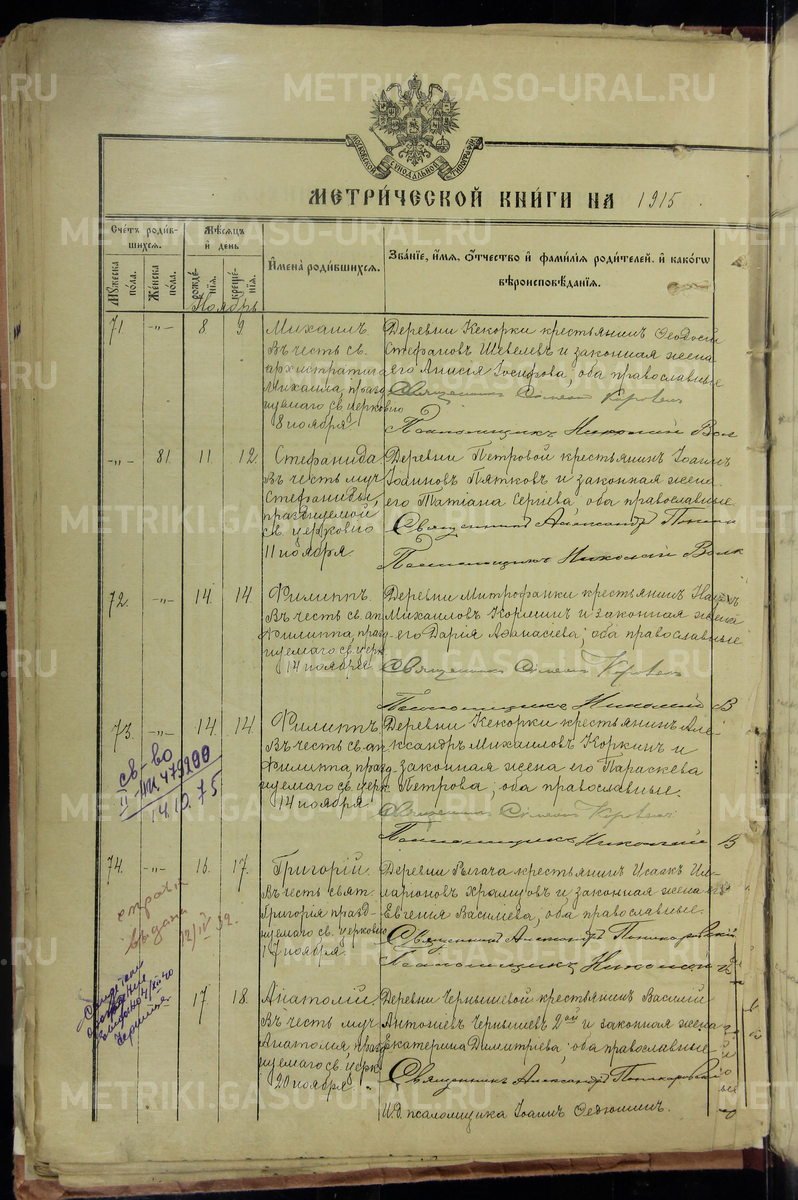 МЕТРИ́ЧЕСКОЙ КНИ́ГИ НА 1915.
МОСКОВСКОЙ СѴНОДАЛЬНОЙ ТИПОГРАФІИ
Сче́тъ роди́вшихся.
Му́жеска по́ла.
Же́нска по́ла.
Мѣ́сяцъ и҆ де́нь
рожде́нїя.
креще́нїя.
И҆мена̀ роди́вшихся.
Зва́нїе, и҆́мя, ѻ҆́тчество и҆ фами́лїя роди́телей, и҆ како́гѡ
вѣроисповѣ́данїя.
Ноябрь
71 -"- 8 9.
Михаилъ
Въ честь св.
архистратига
Михаила, праздн
уемаго св. церковію
8 ноября
Деревни Кекорки крестьянинъ Ѳеодосій
Стефановъ Шевелевъ и законная жена
его Анисія Іосифова, оба православные
Священникъ
Псаломщикъ Николай Вол
-"- 81. 11 12.
Стефанида
Въ честь муч.
Стефаниды,
празднуемой
св. церковію
11 ноября
Деревни Петровой крестьянинъ Іоаннъ
Іоанновъ Пятковъ и законная жена
его Татіана Сергіева, оба православные
Священникъ Александръ Понома
Псаломщикъ Николай Волк
72. -"- 14. 14
Филиппъ
Въ честь св. ап.
Филиппа, празд
нуемаго св. церк.
14 ноября
Деревни Митрофанки крестьянинъ Наумъ
Михаиловъ Коркинъ и законная жена
его Дарія Аѳанасіева, оба православные
Священникъ
Псаломщикъ Николай В
73. -"- 14. 14
Филиппъ
Въ честь св. ап.
Филиппа, празд
нуемаго св. церк.
14 ноября
Деревни Кекорки крестьянинъ Але-
ксандръ Михаиловъ Коркинъ и
законная жена его Параскева
Петрова, оба православные.
Священникъ
Псаломщикъ Николай В
св-во
479200
14.10.75
74. -"- 16. 17.
Григорій
Въ честь свят.
Григорія празд-
нуемаго св. церковію
17 ноября.
Деревни Гыгача крестьянинъ Исаакъ Ил-
ларіоновъ Храмцовъ и законная жена его
Евгенія Василіева, оба православные.
Священникъ Александръ
Псаломщикъ Николай
справка
выдана
12/IV 32.
17 18.
Анатолій
Въ честь муч.
Анатолія, празд
нуемаго св. церк.
20 ноября
Деревни Чернышевой крестьянинъ Василій
Антоніевъ Чернышевъ 2ой и законная жена
Екатерина Димитріева, оба православные
Священникъ Александръ
И. д. псаломщика Іоаннъ Ѳедюшинъ.
METRIKI.GASO-URAL.RU